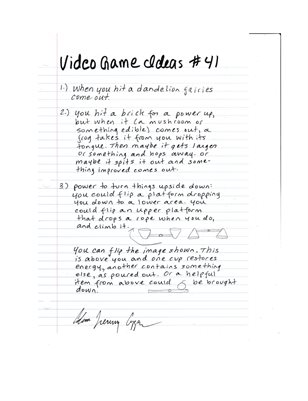 Video Game Ideas #41
1.) When you hit a dandelion fairies
come out.
2.) you hit a brick for a power up,
but when it (a mushroom or
something edible) comes out, a
frog takes it from you with its
tongue. Then maybe it gets larger
or something and hops away. or
maybe it spits it out and some-
thing improved comes out.
3.) power to turn things upside down:
you could flip a platform dropping
you down to a lower area. you
could flip an upper platform
that drops a rope when you do,
and climb it.
You can flip the image shown. This
is above you and one cup restores
energy, another contains something
else, as poured out. Or a helpful
item from above could be brought
down.